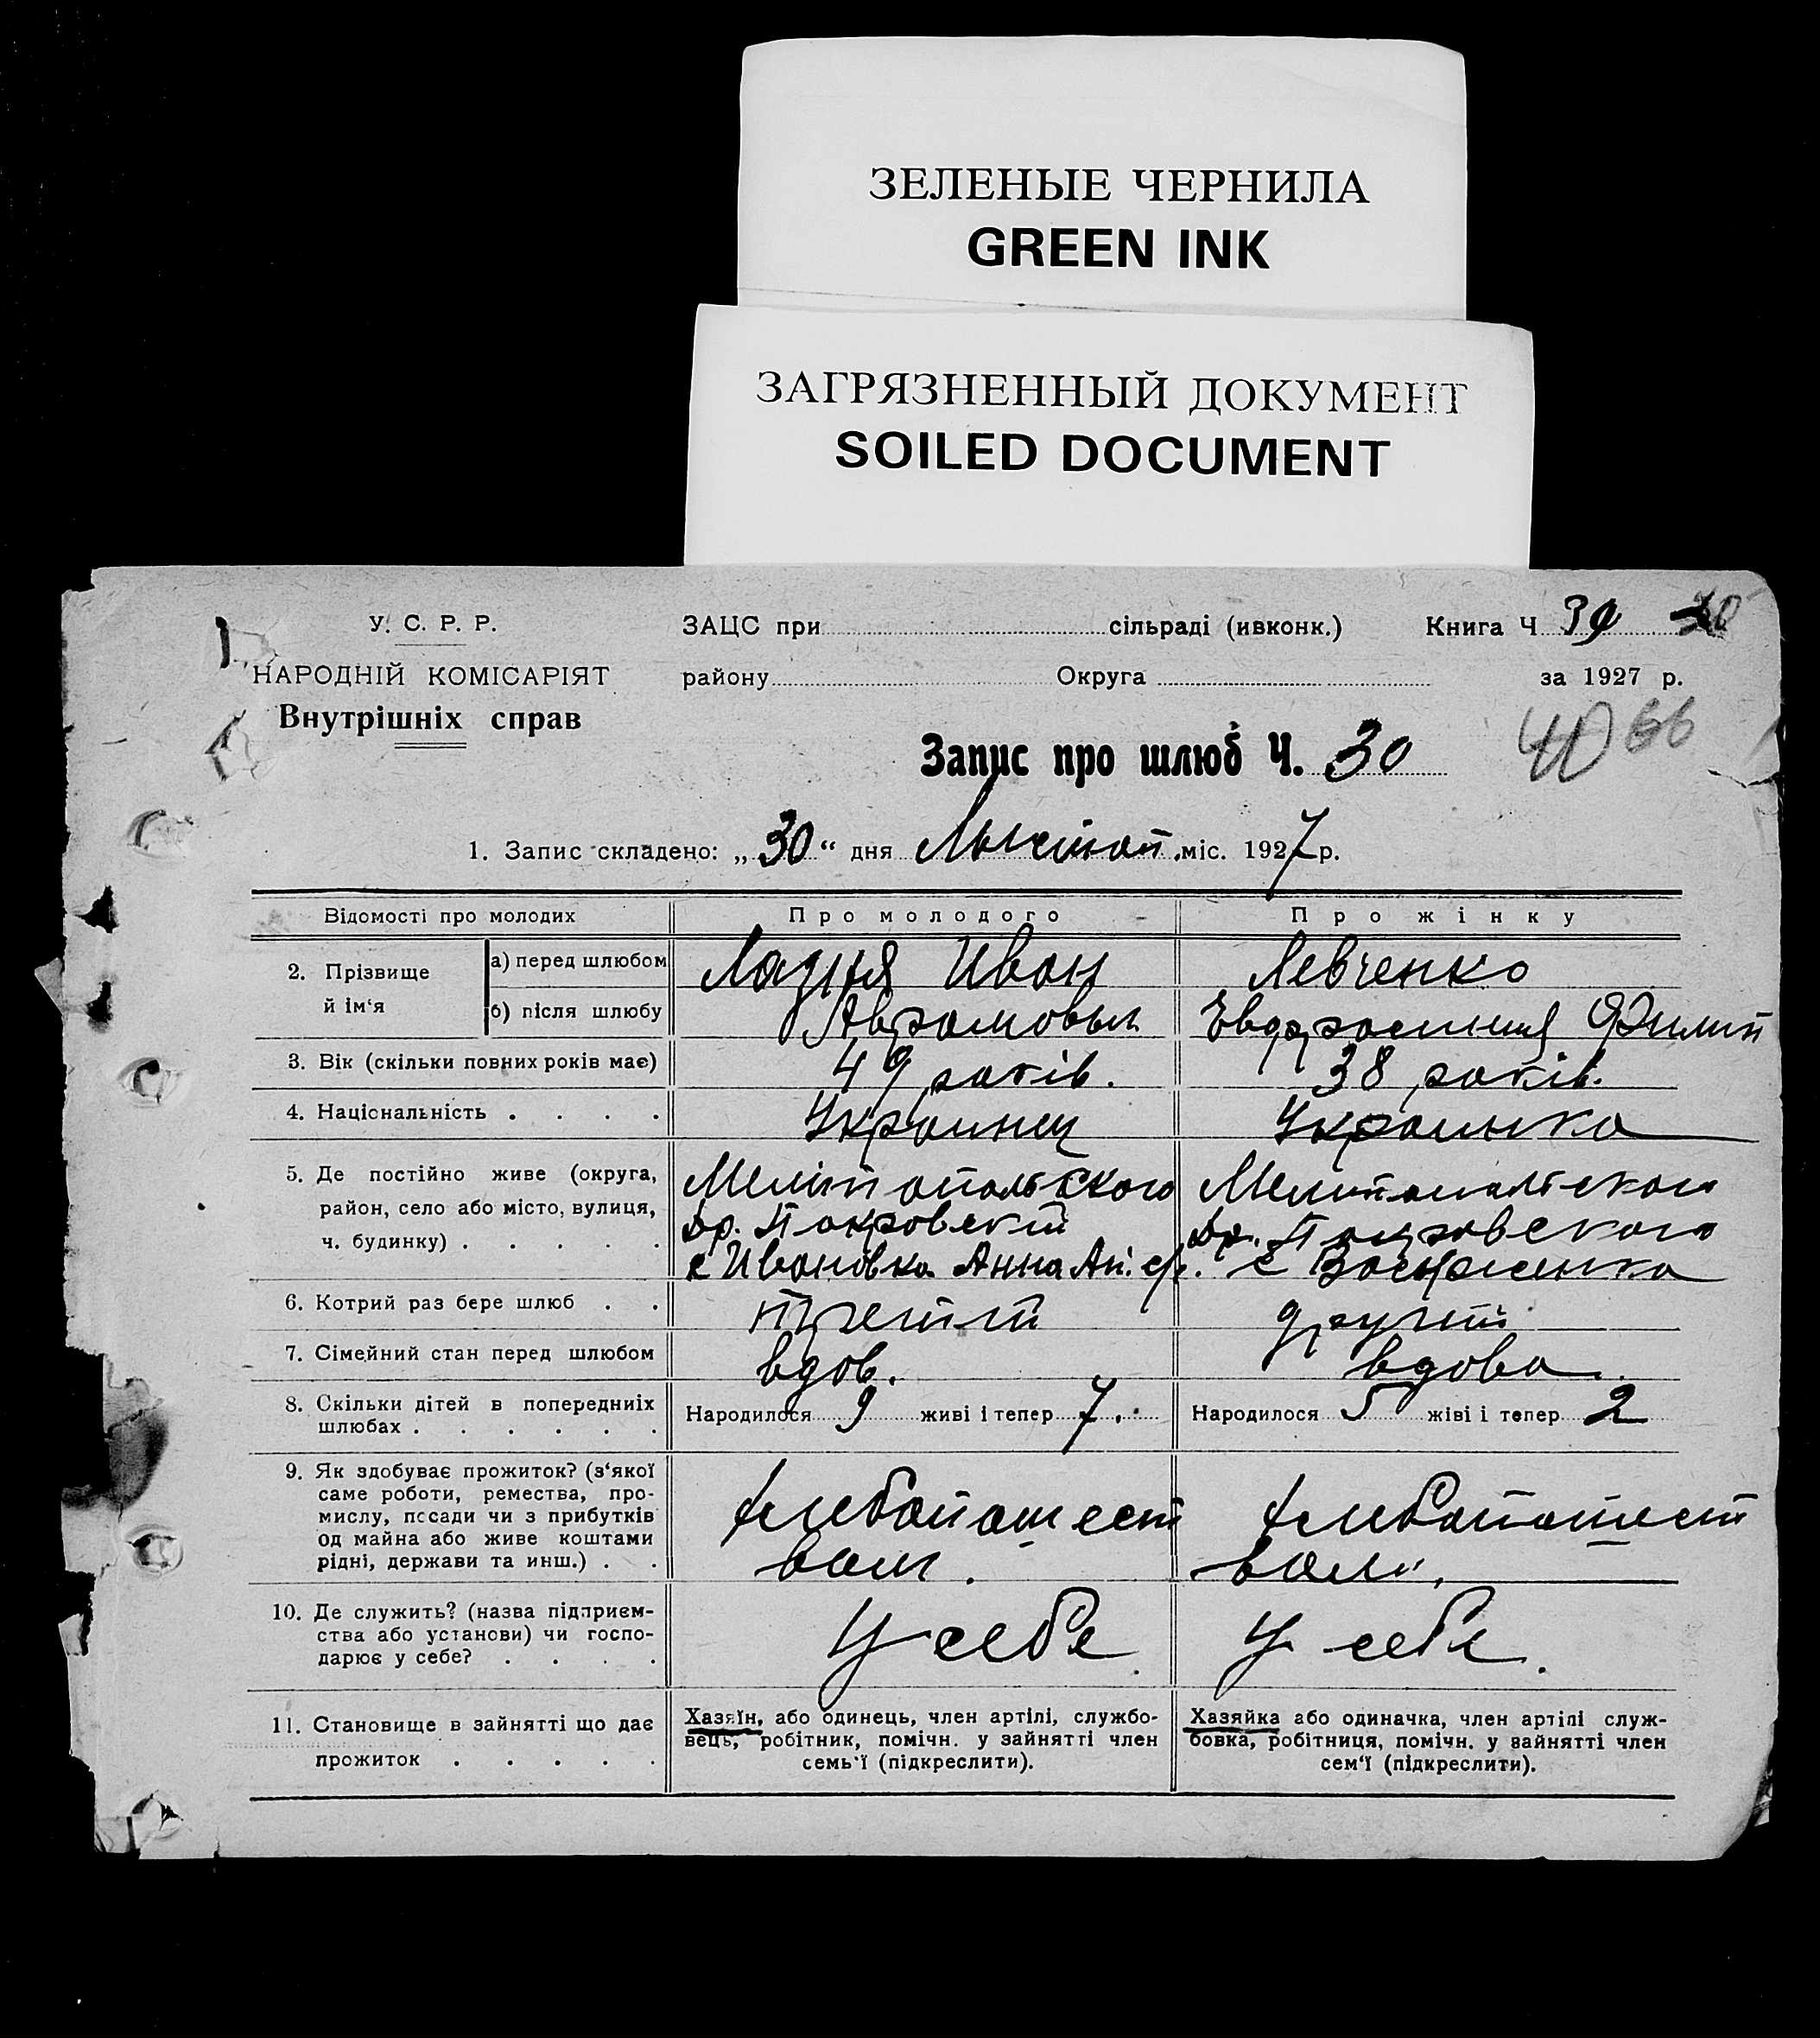 ЗЕЛЕНЫЕ ЧЕРНИЛА
GREEN INK
ЗАГРЯЗНЕННЫЙ ДОКУМЕНТ
SOILED DOCUMENT
У. С. Р. Р.
ЗАЦС при сільраді (ивконк.) Книга Ч
НАРОДНІЙ КОМІСАРІЯТ
району Округа за 1927 р.
Внутрішніх справ
Запис про шлюб Ч. 30
40 66
1. Запис складено: „30“ дня Лыстоп. міс. 1927 р.
Відомості про молодих Про молодого Про жінку
2. Прізвище й ім‘я
а) перед шлюбом Иван Левченко
б) після шлюбу Аврамовыч Филип
3. Вік (скільки повних років має) 49 років. 38 років.
4. Національність . . . . Украинец Украинка
5. Де постійно живе (округа, Мелітопольского Мелитопольского
район, село або місто, вулиця, Покровский Покровского
ч. будинку) . . . . . с Ивановка Анна с
6. Котрий раз бере шлюб . . третий другий
7. Сімейний стан перед шлюбом вдов. вдова.
8. Скільки дітей в попередниіх Народилося 9 живі і тепер 7. Народилося 5 жіві і тепер 2
шлюбах . . . . . .
9. Як здобуває прожиток? (з‘якої
саме роботи, ремества, про-
мислу, посади чи з прибутків хлебопашест хлебопашест
од майна або живе коштами
рідні, держави та инш.) . . вом. вом.
10. Де служить? (назва підприєм-
ства або установи) чи госпо- У себе У себе.
дарює у себе? . . . .
11. Становище в зайнятті що дає Хазяїн, або одинець, член артілі, службо- Хазяйка або одиначка, член артілі служ-
вець, робітник, помічн. у зайнятті член бовка, робітниця, помічн. у зайнятті член
прожиток . . . . . семь‘ї (підкреслити). сем‘ї (підкреслити).